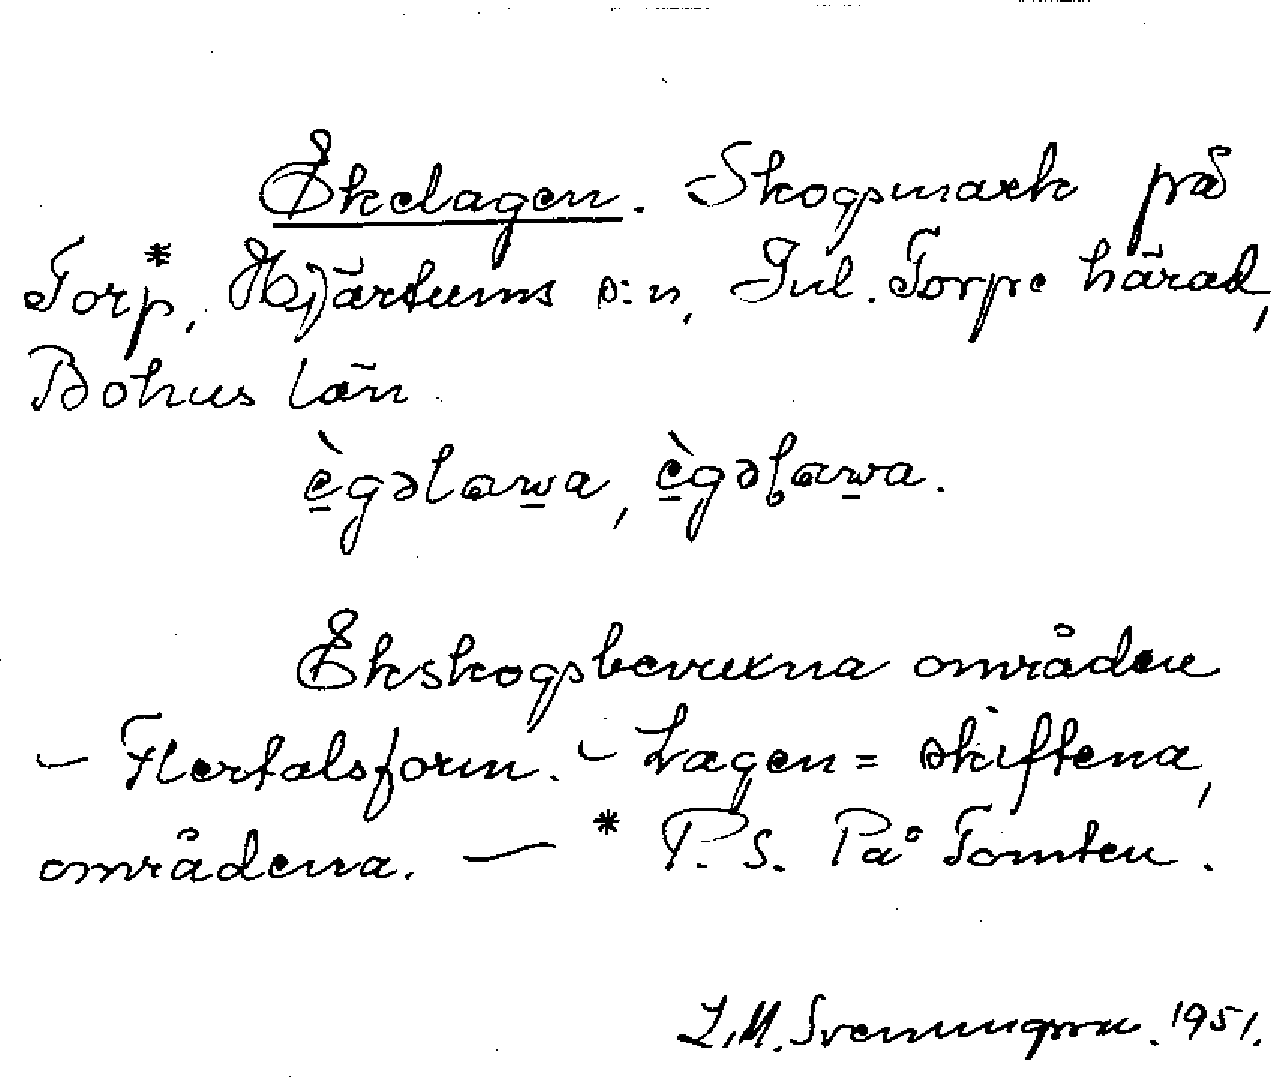 Ekelagen. Skogsmark på
Torp*, Hjärtums s:n, Inl. Torpe härad,
Bohus län.
ègəlawa, ègəlawa.
Ekskogsbevuxna områden
– Flertalsform. – Lagen = skiftena,
områdena. — * P. S. På Tomten.
L.M. Svenungsson. 1951.